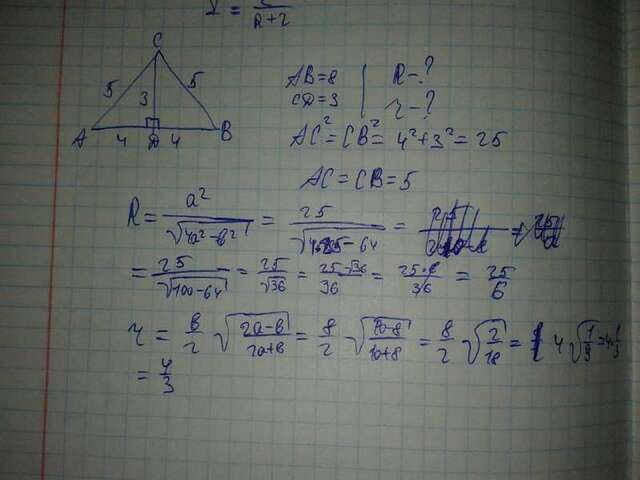 R+2
C
5 3 5
A 4 D 4 B
AB=8 R-?
CD=3 r-?
AC²=CB²=4²+3²=25
AC=CB=5
R = a²/√(4a²-b²) = 25/√(4·25-64) =
= 25/√(100-64) = 25/√36 = 25·√36/36 = 25·6/36 = 25/6
r = b/2 √((2a-b)/(2a+b)) = 8/2 √((10-8)/(10+8)) = 8/2 √(2/18) = 4√(1/9) = 4·1/3
= 4/3